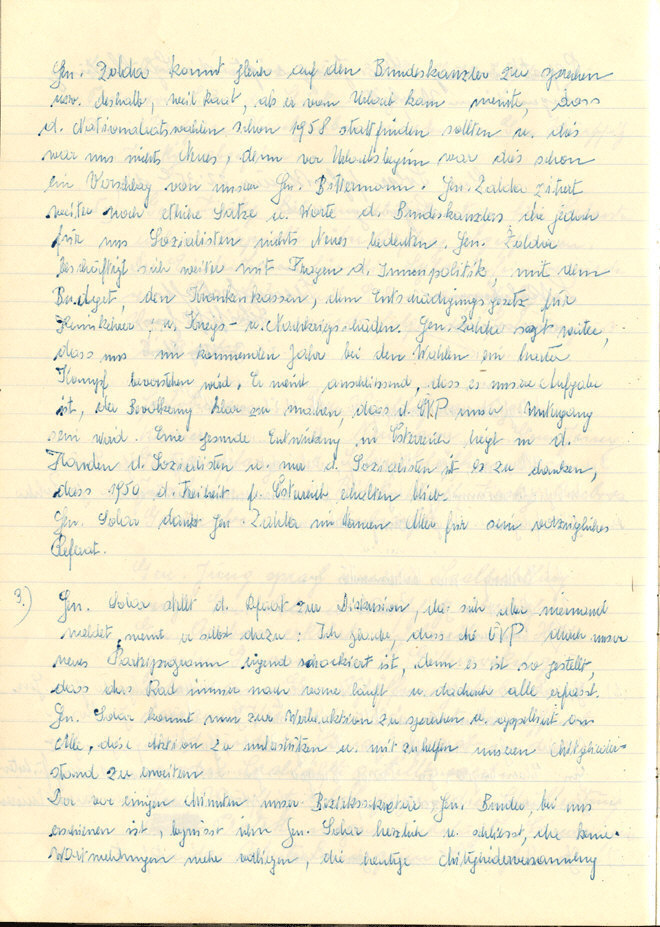 Gen. Zahba kommt gleich auf den Bundeskanzler zu sprechen
usw. deshalb, weil Raab, als er vom Urlaub kam meinte, dass
d. Nationalratswahlen schon 1958 stattfinden sollten u. dies
war uns nichts Neues, denn vor Urlaubsbeginn war dies schon
ein Vorschlag von unser Gen. Gen. Zahba zitiert
weiter noch etliche Sätze u. Worte d. Bundeskanzlers die jedoch
für uns Sozialisten nichts Neues bedeuten. Gen. Zahba
beschäftigt sich weiter mit Fragen d. Innenpolitik, mit dem
Budget, den Krankenkassen, dem Entschädigungsgesetz für
Heimkehrer u. Kriegs- u. Nachkriegsschäden. Gen. Zahba sagt weiter,
dass uns im kommenden Jahr bei den Wahlen ein harter
Kampf bevorstehen wird. Er meint anschliessend, dass es unsere Aufgabe
ist, der Bevölkerung klar zu machen, dass d. ÖVP unser Untergang
sein wird. Eine gesunde Entwicklung in Österreich liegt in d.
Händen d. Sozialisten u. nur d. Sozialisten ist es zu danken,
dass 1950 d. Freiheit f. Österreich erhalten blieb.
Gen. Solar dankt Gen. Zahba im Namen Aller für sein vorzügliches
Referat.
3.) Gen. Solar stellt d. Referat zur Diskussion, da sich aber niemand
meldet, meint er selbst dazu: Ich glaube, dass die ÖVP durch unser
neues Parteiprogramm irgend schockiert ist, denn es ist so gestellt,
dass das Rad immer nach vorne läuft u. dadurch alle erfasst.
Gen. Solar kommt nun zur Werbeaktion zu sprechen u. appelliert an
Alle, diese Aktion zu unterstützen u. mitzuhelfen unseren Mitglieder-
stand zu erweitern.
Da vor einigen Minuten unser Bezirkssekretär Gen. Binder, bei uns
erschienen ist, begrüsst ihn Gen. Solar herzlich u. schliesst, da keine
Wortmeldungen mehr vorliegen, die heutige Mitgliederversammlung